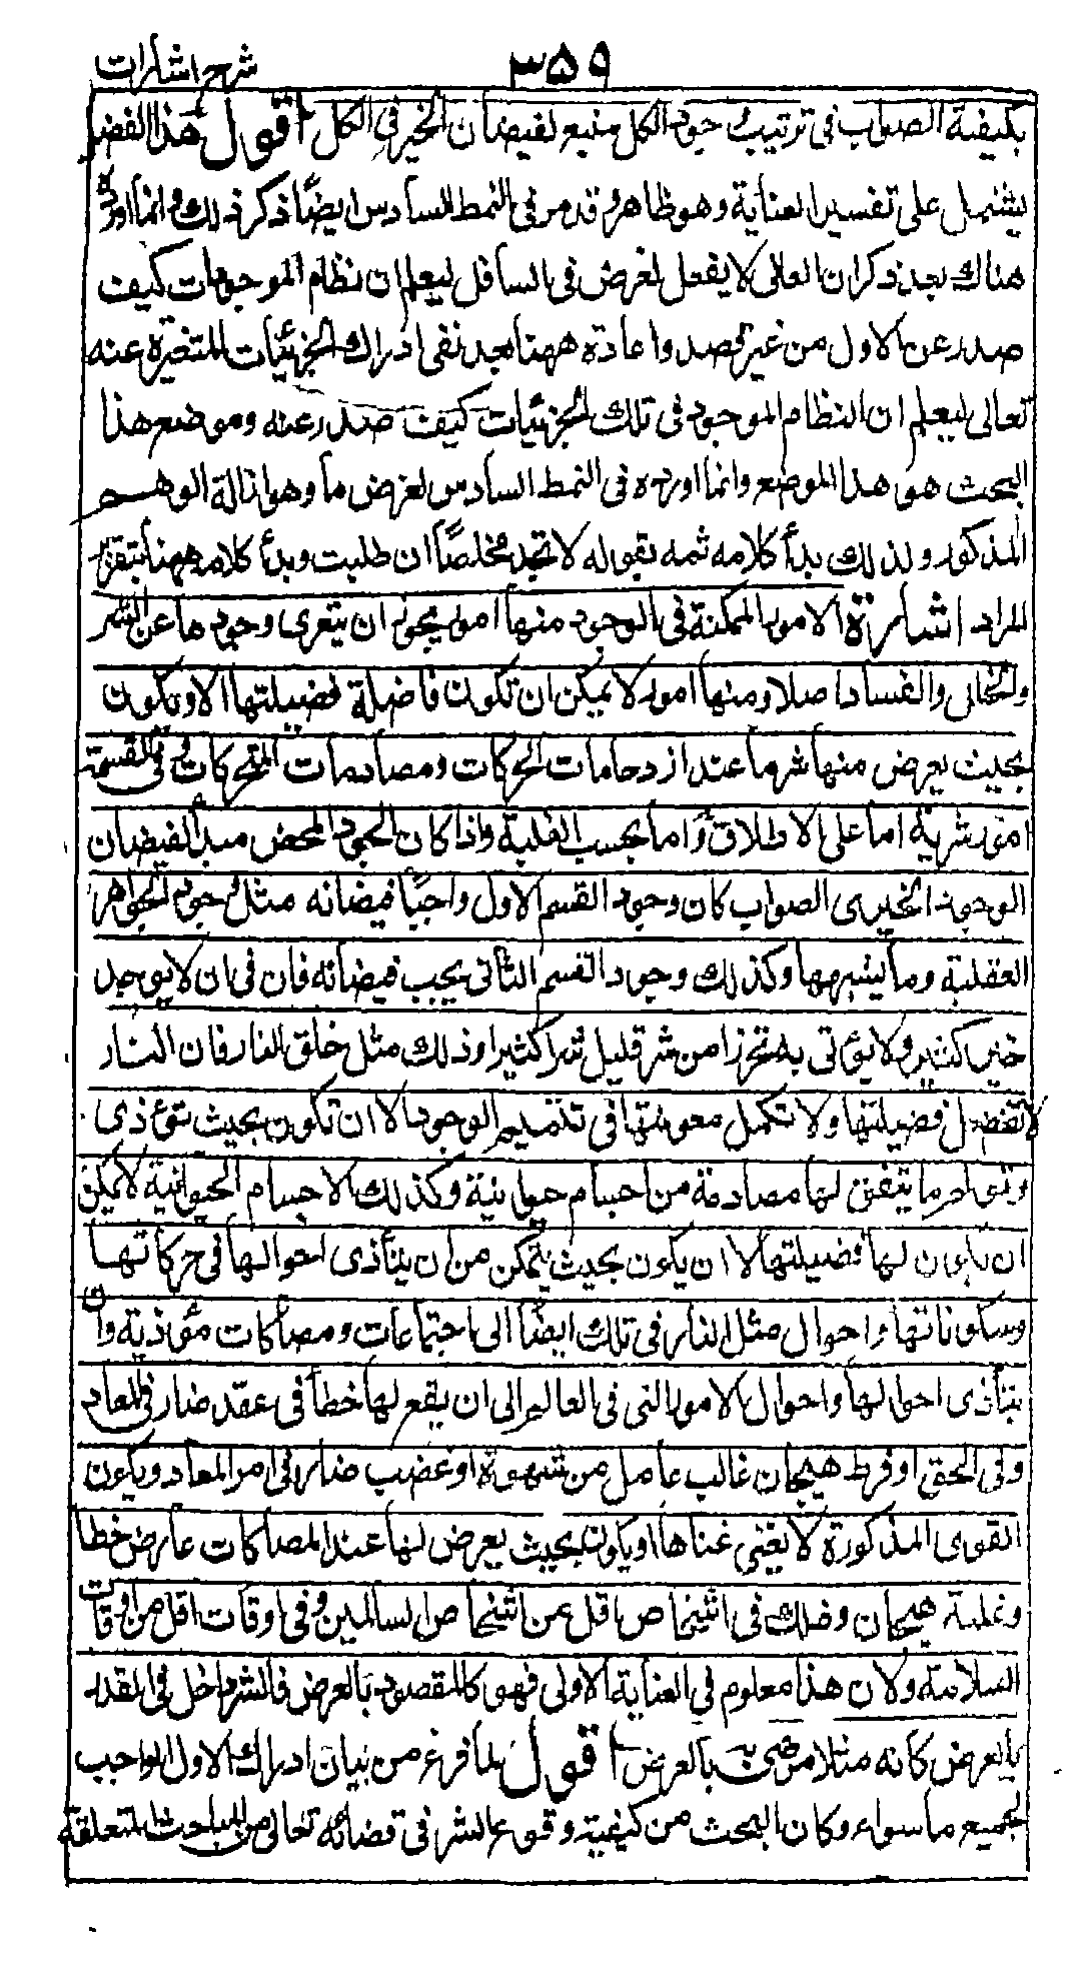 شرح اشارات
۳۵۹
بكيفية الصواب فى ترتيب وجود الكل منبع لفيضان الخير فى الكل اقول هذا الفصل
يشتمل على تفسير العناية وهو ظاهر وقد مر فى النمط السادس ايضًا ذكر ذلك وانما اورده
هناك بعد ذكر ان العالى لا يفعل لغرض فى السافل ليعلم ان نظام الموجودات كيف
صدر عن الاول من غير قصد واعاده ههنا بعد نفى ادراك الجزئيات المتغيرة عنه
تعالى ليعلم ان النظام الموجود فى تلك الجزئيات كيف صدر عنه وموضع هذا
البحث هو هذا الموضع وانما اورده فى النمط السادس لغرض ما وهو ازالة الوهم
المذكور ولذلك بدأ كلامه ثمه بقوله لا تجد مخلصًا ان طلبت وبدأ كلامه ههنا بتقرير
المراد اشارة الامور الممكنة فى الوجود منها امور يجوز ان يتعرى وجودها عن الشر
والخلل والفساد اصلا ومنها امور لا يمكن ان تكون فاضلة فضيلتها الا وتكون
بحيث يعرض منها شر ما عند ازدحامات الحركات ومصادمات المتحركات وفى القسمة
امور شرية اما على الاطلاق واما بحسب الغلبة واذا كان الجود المحض مبدأ لفيضان
الوجود الخيرى الصواب كان وجود القسم الاول واجبًا فيضانه مثل وجود الجواهر
العقلية وما يشبهها وكذلك وجود القسم الثانى يجب فيضانه فان فى ان لا يوجد
خير كثير ولا يؤتى به تحرزا من شر قليل شرا كثيرا وذلك مثل خلق النار فان النار
لا تفضل فضيلتها ولا تكمل معونتها فى تتميم الوجود الا ان تكون بحيث تؤذى
وتؤلم ما يتفق لها مصادمة من اجسام حيوانية وكذلك الاجسام الحيوانية لا يمكن
ان يكون لها فضيلتها الا ان يكون بحيث يمكن من ان يتأذى احوالها فى حركاتها
وسكوناتها واحوال مثل النار فى تلك ايضًا الى اجتماعات ومصاكات مؤذية وان
يتأذى احوالها واحوال الامور التى فى العالم الى ان يقع لها خطأ فى عقد ضار فى المعاد
وفى الحق او فرط هيجان غالب عامل من شهوة او غضب ضار فى امر المعاد ويكون
القوى المذكورة لا يغنى غناها او يكون بحيث يعرض لها عند المصاكات عارض خطا
وغلبة هيجان وذلك فى اشخاص اقل من اشخاص السالمين وفى اوقات اقل من اوقات
السلامة ولان هذا معلوم فى العناية الاولى فهو كالمقصود بالعرض فالشر داخل فى القدر
بالعرض كانه مثلا مرضى به بالعرض اقول لما فرغ من بيان ادراك الاول الواجب
لجميع ما سواه وكان البحث من كيفية وقوع الشر فى قضائه تعالى من المباحث المتعلقة